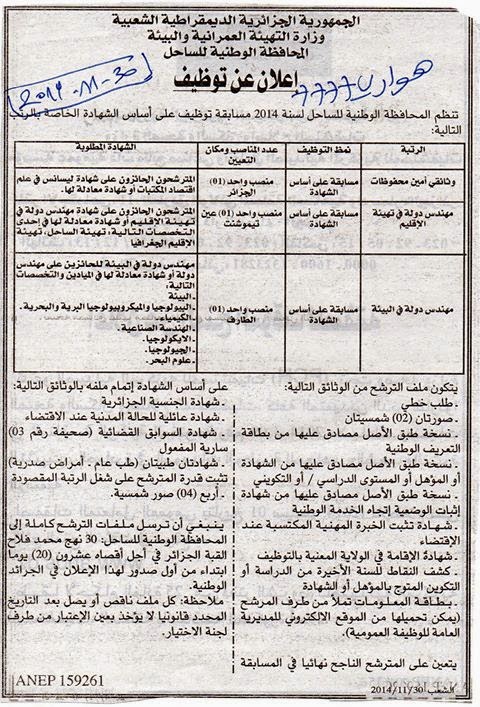 الجمهورية الجزائرية الديمقراطية الشعبية
وزارة التهيئة العمرانية والبيئة
المحافظة الوطنية للساحل
إعلان عن توظيف
هواري 7777
2014-11-30
تنظم المحافظة الوطنية للساحل لسنة 2014 مسابقة توظيف على أساس الشهادة الخاصة بالرتب
التالية:
الرتبة
نمط التوظيف
عدد المناصب ومكان
التعيين
الشهادة المطلوبة
وثائقي أمين محفوظات
مسابقة على أساس
الشهادة
منصب واحد (01)
الجزائر
المترشحون الحائزون على شهادة ليسانس في علم
اقتصاد المكتبات أو شهادة معادلة لها.
مهندس دولة في تهيئة
الإقليم
مسابقة على أساس
الشهادة
منصب واحد (01) عين
تيموشنت
المترشحون الحائزون على شهادة مهندس دولة في
تهيئة الإقليم أو شهادة معادلة لها في إحدى
التخصصات التالية، تهيئة الساحل، تهيئة
الإقليم الجغرافيا
مهندس دولة في البيئة
مسابقة على أساس
الشهادة
منصب واحد (01)
الطارف
مهندس دولة في البيئة للحائزين على مهندس
دولة أو شهادة معادلة لها في الميادين والتخصصات
التالية:
- البيئة
- البيولوجيا والميكروبيولوجيا البرية والبحرية.
- الكيمياء.
- الهندسة الصناعية.
- الايكولوجيا.
- الجيولوجيا.
- علوم البحر.
يتكون ملف الترشح من الوثائق التالية:
- طلب خطي
- صورتان (02) شمسيتان
- نسخة طبق الأصل مصادق عليها من بطاقة
التعريف الوطنية
- نسخة طبق الأصل مصادق عليها من الشهادة
أو المؤهل أو المستوى الدراسي / أو التكويني
- نسخة طبق الأصل مصادق عليها من شهادة
إثبات الوضعية إتجاه الخدمة الوطنية
- شهادة تثبت الخبرة المهنية المكتسبة عند
الإقتضاء
- شهادة الإقامة في الولاية المعنية بالتوظيف
- كشف النقاط للسنة الأخيرة من الدراسة أو
التكوين المتوج بالمؤهل أو الشهادة
- بطاقة المعلومات تملأ من طرف المرشح
(يمكن تحميلها من الموقع الالكتروني للمديرية
العامة للوظيفة العمومية).
يتعين على المترشح الناجح نهائيا في المسابقة
على أساس الشهادة إتمام ملفه بالوثائق التالية:
- شهادة الجنسية الجزائرية
- شهادة عائلية للحالة المدنية عند الاقتضاء
- شهادة السوابق القضائية (صحيفة رقم 03)
سارية المفعول
- شهادتان طبيتان (طب عام - أمراض صدرية)
تثبت قدرة المترشح على شغل الرتبة المقصودة
- أربع (04) صور شمسية.
ينبغي أن ترسل ملفات الترشح كاملة إلى
المحافظة الوطنية للساحل: 30 نهج محمد فلاح
القبة الجزائر في أجل أقصاه عشرون (20) يوما
ابتداء من أول صدور لهذا الإعلان في الجرائد
الوطنية.
ملاحظة: كل ملف ناقص أو يصل بعد التاريخ
المحدد قانونيا لا يؤخذ بعين الإعتبار من طرف
لجنة الاختيار.
الشعب 2014/11/30
ANEP 159261